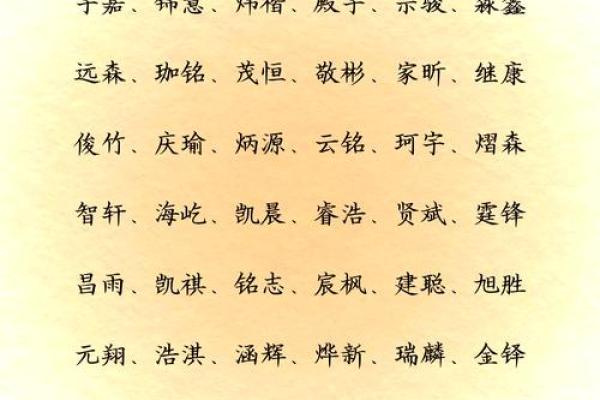 子嘉、锦意、炜楷、殿宇、宗骏、淼鑫
远森、珈铭、茂恒、敬彬、家昕、继康
俊竹、庆瑜、炳源、云铭、珂宇、熠森
智轩、海屹、凯晨、睿浩、贤斌、霆锋
昌雨、凯祺、铭志、宸枫、建聪、旭胜
元翔、浩淇、涵辉、烨新、瑞麟、金铎